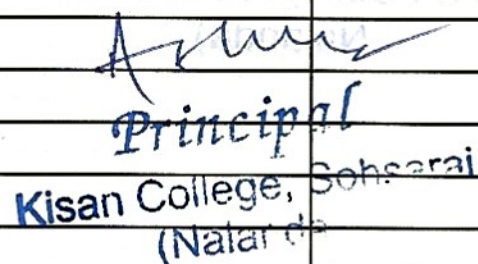 Principal
Kisan College, Sohsarai
(Nalanda